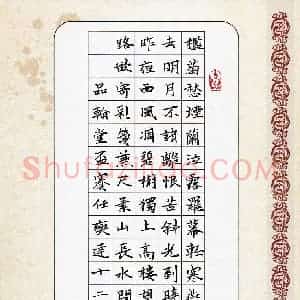 檻菊愁煙蘭泣露羅幕輕寒燕
去明月不諳離恨苦斜光到曉
昨夜西風凋碧樹獨上高樓望
路欲寄彩箋兼尺素山長水闊
品翰堂盃賽任奕達十二